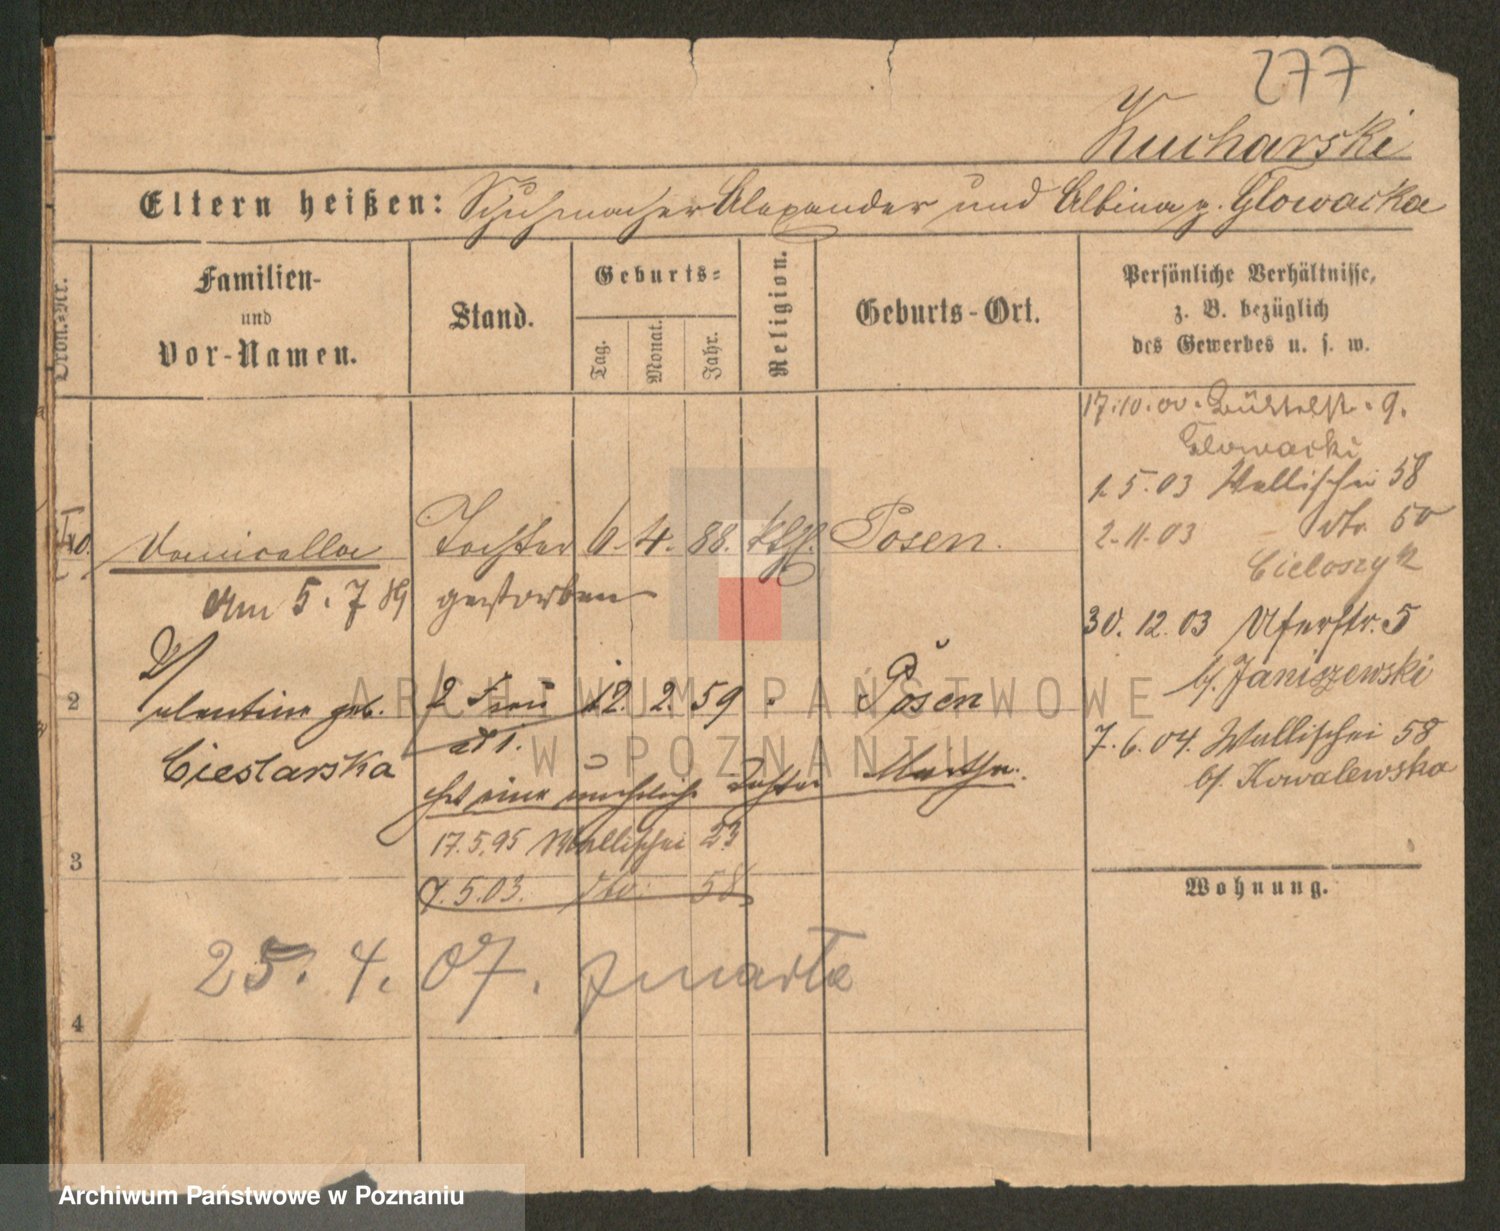 277
Kucharski
Eltern heißen: Schuhmacher Alexander und Albina g. Glowacka
Ordn.-Nr.
Familien-
und
Vor-Namen.
Stand.
Geburts-
Tag.
Monat.
Jahr.
Religion.
Geburts-Ort.
Persönliche Verhältnisse,
z. B. bezüglich
des Gewerbes u. s. w.
17.10.00. Büttelst. 9.
Glowacki
1.5.03 Wallischei 58
2.11.03 - dto 50
Cieloszyk
30.12.03 Uferstr. 5
b/. Janiszewski
7.6.04. Wallischei 58
b/. Kowalewska
10. Tochter 6. 4. 88. kth. Posen.
Am 5.7 89 gestorben
2 Valentine geb. 2 Frau 12. 2. 59 Posen
Cieslarska ad 1.
hat eine uneheliche Tochter Martha.
17.5.95 Wallischei 23
3
7.5.03. dto: 58
Wohnung.
25. 4. 07.
4
ARCHIWUM PAŃSTWOWE
W POZNANIU
Archiwum Państwowe w Poznaniu